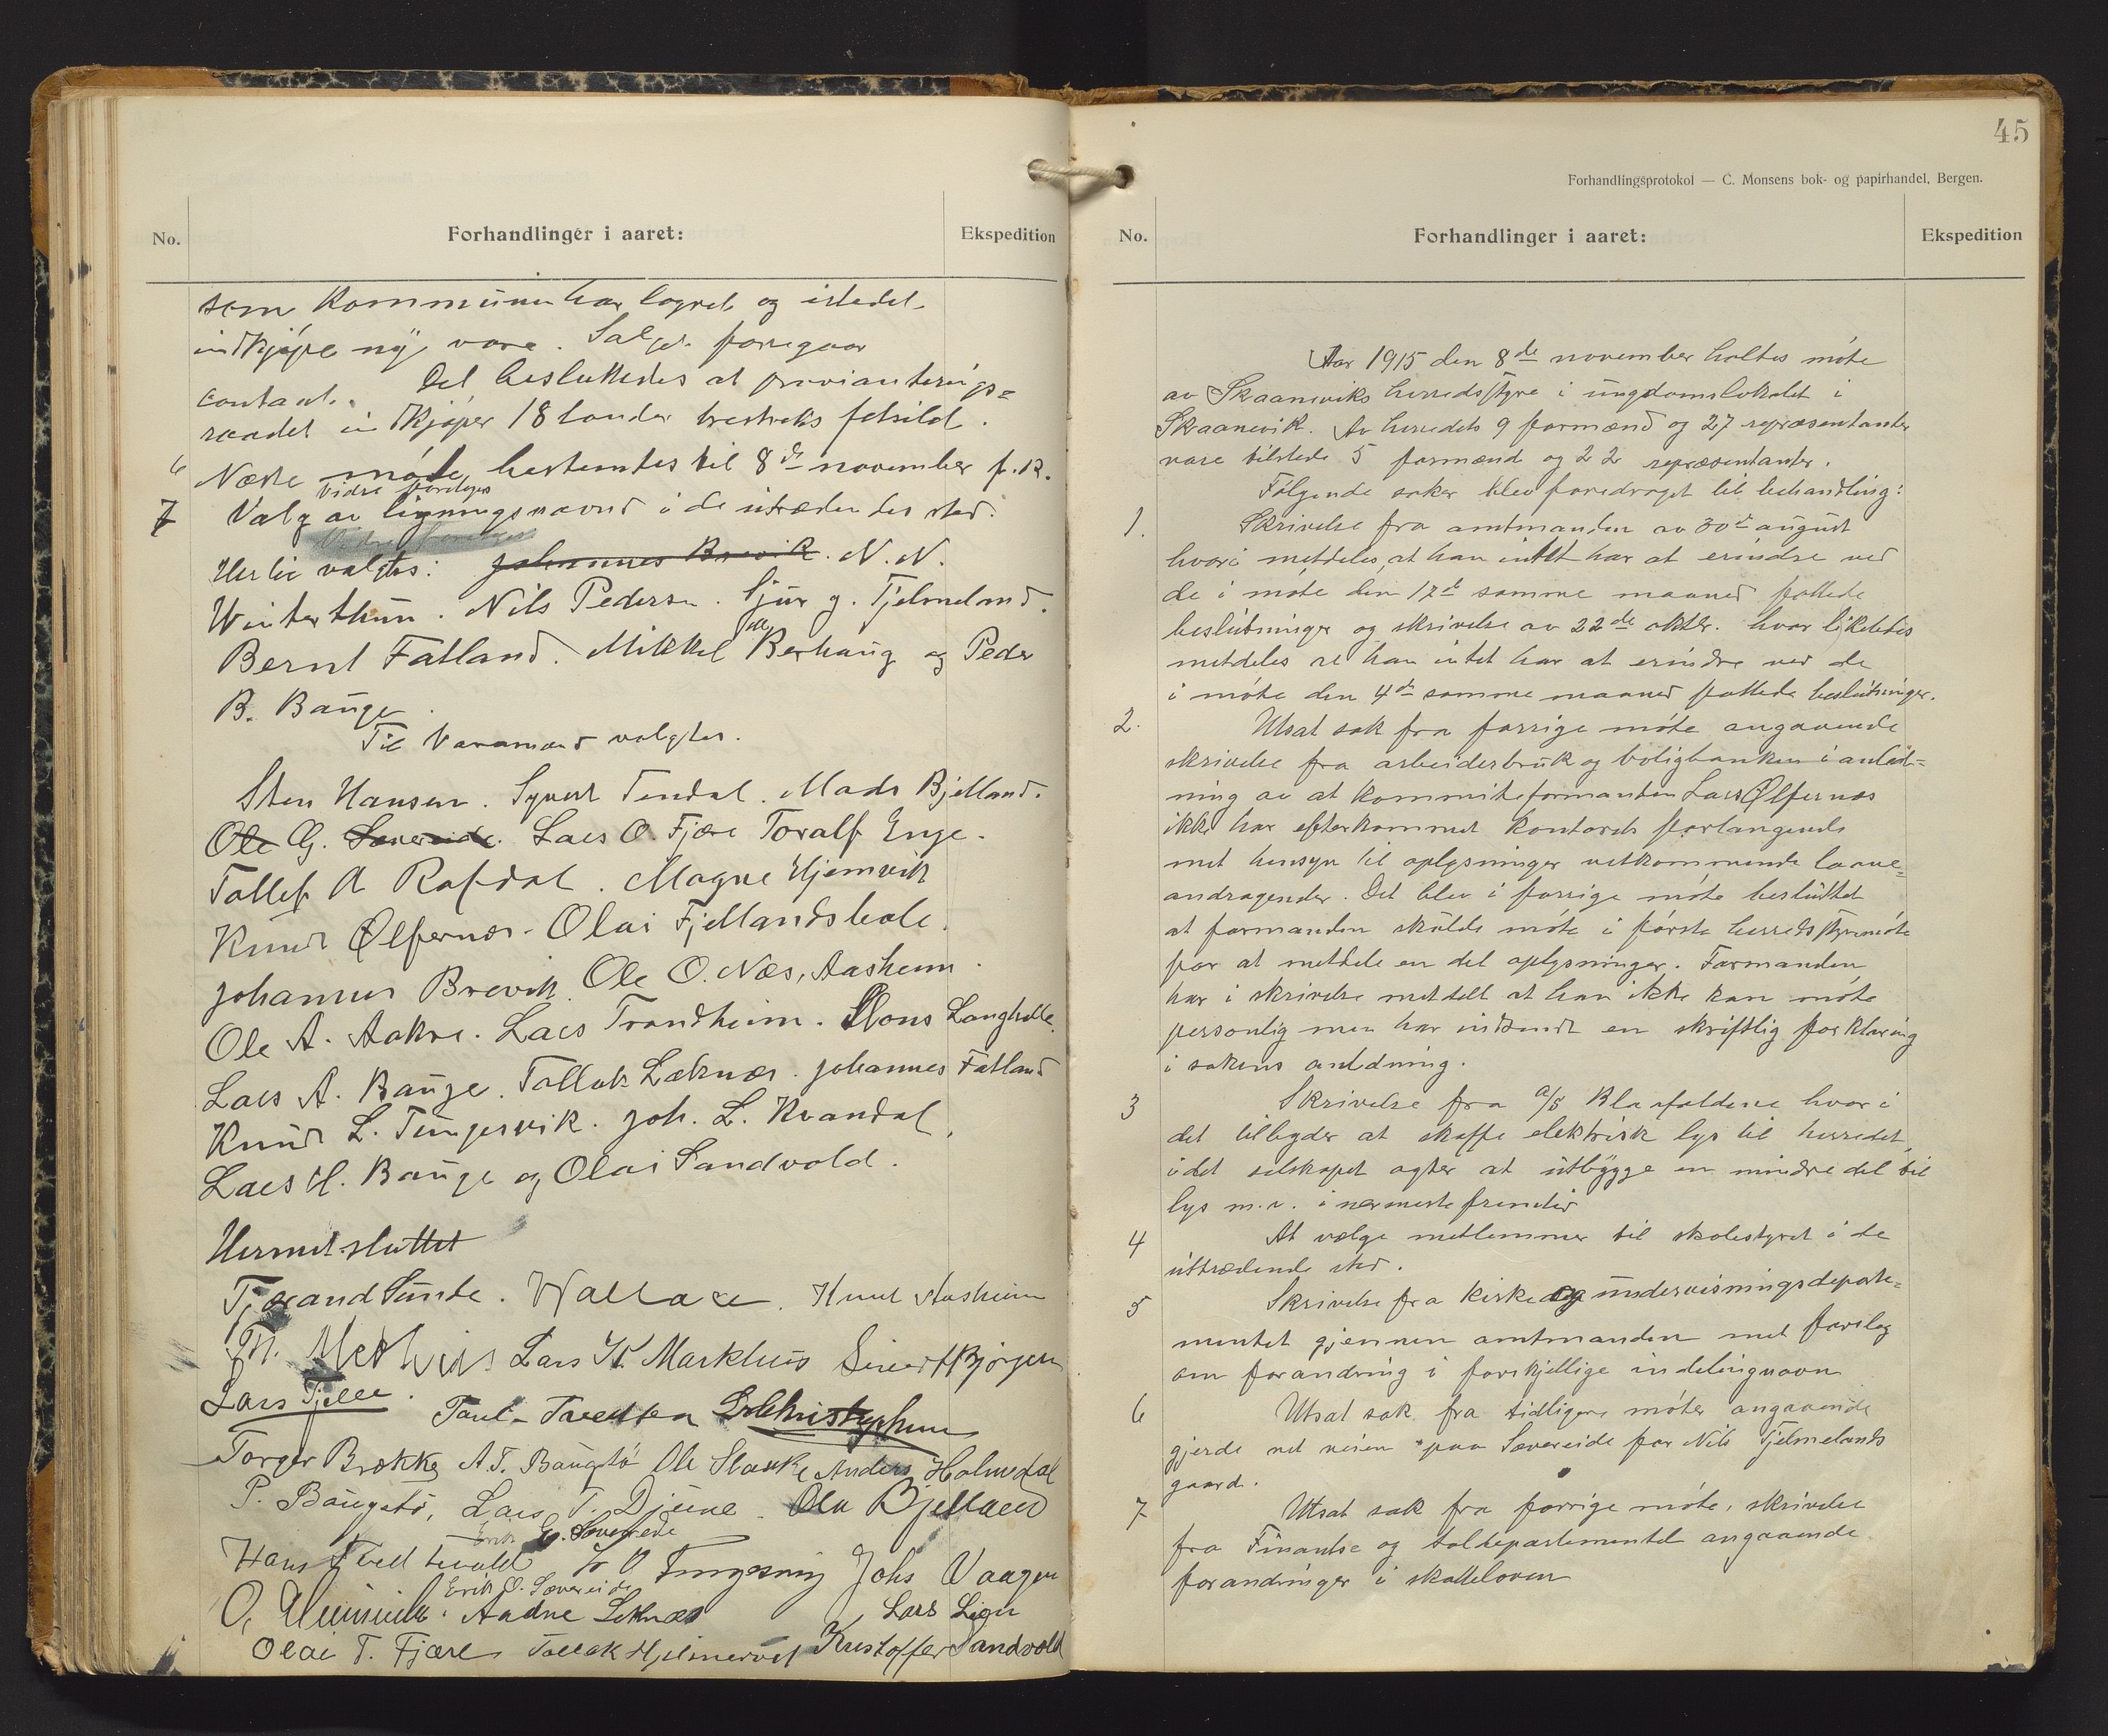 No.
Forhandlinger i aaret:
Ekspedition
som kommunen har lagret og istedet
indkjøpe ny vare. Salget foregaar
contant. Det besluttedes at provianterings=
raadet indkjøper 18 tønder trestreks fetsild.
6 Næste møte bestemtes til 8de november f. k.
Vidre foretoges
7 Valg av ligningsnævnd i de utrædendes sted.
Hertil valgtes: Johannes Brevik. N. N.
Winterthun. Nils Pedersen. Sjur G. Tjelmeland.
Bernt Fatland. Mikkel M Berhaug og Peder
B. Bauge.
Til Varamænd valgtes.
Sten Hansen. Syvert Tendal. Mads Bjelland.
Ole G. Sævereide. Lars O. Fjære Toralf Enge.
Tollef A Rafdal. Magne Hjemvik
Knud Ølfernæs. Olai Fjellandsbole.
Johannes Brevik. Ole O. Næs, Aasheim.
Ole A. Aakre. Lars Trondheim. Mons Langhelle.
Lars A. Bauge. Tollak Leknæs. Johannes Fatland
Knud L. Tungesvik. Joh. L. Kvandal,
Lars H. Bauge og Olai Sandvold.
Hermed sluttet
Tjerand Sunde. Wallace. Knut Aasheim
Lars K. Markhus Sivert Bjørgen
Lars Tjelle. Paul Tveitten
Torger Brekke A.T. Baugstø Ole Anders Holmedal
P. Baugstø, Lars T. Djuve. Ola Bjelland
Erik O. Sævereide
Hans Tveit Johs Vaagen
Erik O. Sævereide
O. Aadne Leknæs Lars Lien
Olai T. Fjære Tollak Hjelmervik Kristoffer Sandvold
45
Forhandlingsprotokol — C. Monsens bok- og papirhandel, Bergen.
No.
Forhandlinger i aaret:
Ekspedition
Aar 1915 den 8de november holtes møte
av Skaaneviks herredsstyre i ungdomslokalet i
Skaanevik. Av herredets 9 formænd og 27 repræsentanter
vare tilstede 5 formænd og 22 repræsentanter.
Følgende saker blev foredraget til behandling:
1. Skrivelse fra amtmanden av 30te august
hvori meddeles, at han intet har at erindre ved
de i møte den 17de samme maaned fattede
beslutninger og skrivelse av 22de oktbr. hvor likeledes
meddeles at han intet har at erindre ved de
i møte den 4de samme maaned fattede beslutninger.
2. Utsat sak fra forrige møte angaaende
skrivelse fra arbeiderbruk og boligbanken i anled=
ning av at kommiteformanden Lars Ølfernæs
ikke har efterkommet kontorets forlangende
med hensyn til oplysninger vedkommende laane=
andragender. Det blev i forrige møte besluttet
at formanden skulde møte i første herredsstyremøte
for at meddele en del oplysninger. Formanden
har i skrivelse meddelt at han ikke kan møte
personlig men har indsendt en skriftlig forklaring
i sakens anledning.
3 Skrivelse fra A/S Blaafaldene hvori
det tilbyder at skaffe elektrisk lys til herredet,
idet selskapet agter at utbygge en mindre del til
lys m. v. i nærmeste fremtid
4 At vælge medlemmer til skolestyret i de
uttrædende sted.
5 Skrivelse fra kirke og undervisningsdeparte=
mentet gjennem amtmanden med forslag
om forandring i forskjellige indelingnavn
6 Utsat sak fra tidligere møter angaaende
gjerde ved veien paa Sævereide for Nils Tjelmelands
gaard.
7 Utsat sak fra forrige møte, skrivelse
fra Finantse og toldepartementet angaaende
forandringer i skatteloven